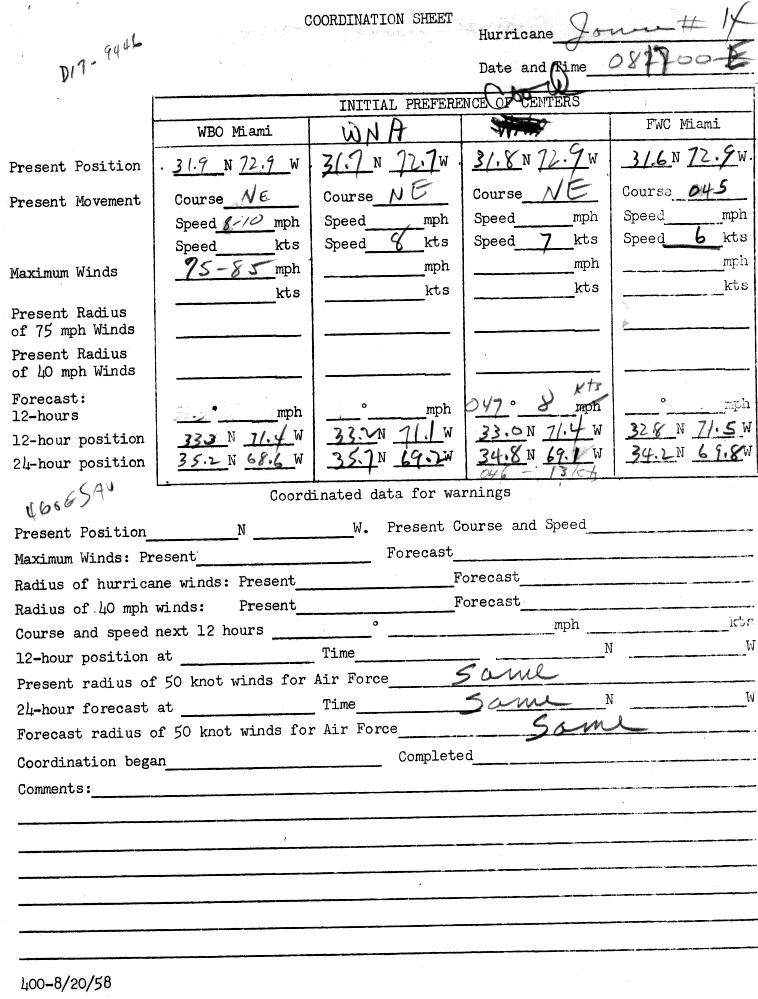 COORDINATION SHEET
Hurricane # 14
D17-9446
Date and Time 0E
INITIAL PREFERENCE OF CENTERS
WBO Miami WNA FWC Miami
Present Position 31.9 N 72.9 W 31.7 N 72.7 W 31.8 N 72.9 W 31.6 N 72.9 W.
Present Movement Course NE Course NE Course NE Course 045
Speed 8-10 mph Speed mph Speed mph Speed mph
Speed kts Speed 8 kts Speed 7 kts Speed 6 kts
Maximum Winds 75-85 mph mph mph mph
kts kts kts kts
Present Radius
of 75 mph Winds
Present Radius
of 40 mph Winds
kts
Forecast:
12-hours ° mph ° mph 047 ° 8 mph ° mph
12-hour position 33.3 N 71.4 W 33.2 N 71.1 W 33.0 N 71.4 W 32.8 N 71.5 W
24-hour position 35.2 N 68.6 W 35.7 N 69.2 W 34.8 N 69.1 W 34.2 N 69.8 W
046 - 13 kts
Coordinated data for warnings
Present Position N W. Present Course and Speed
Maximum Winds: Present Forecast
Radius of hurricane winds: Present Forecast
Radius of 40 mph winds: Present Forecast
Course and speed next 12 hours ° mph kts
12-hour position at Time N W
Present radius of 50 knot winds for Air Force Same
24-hour forecast at Time Same N W
Forecast radius of 50 knot winds for Air Force Same
Coordination began Completed
Comments:
400-8/20/58